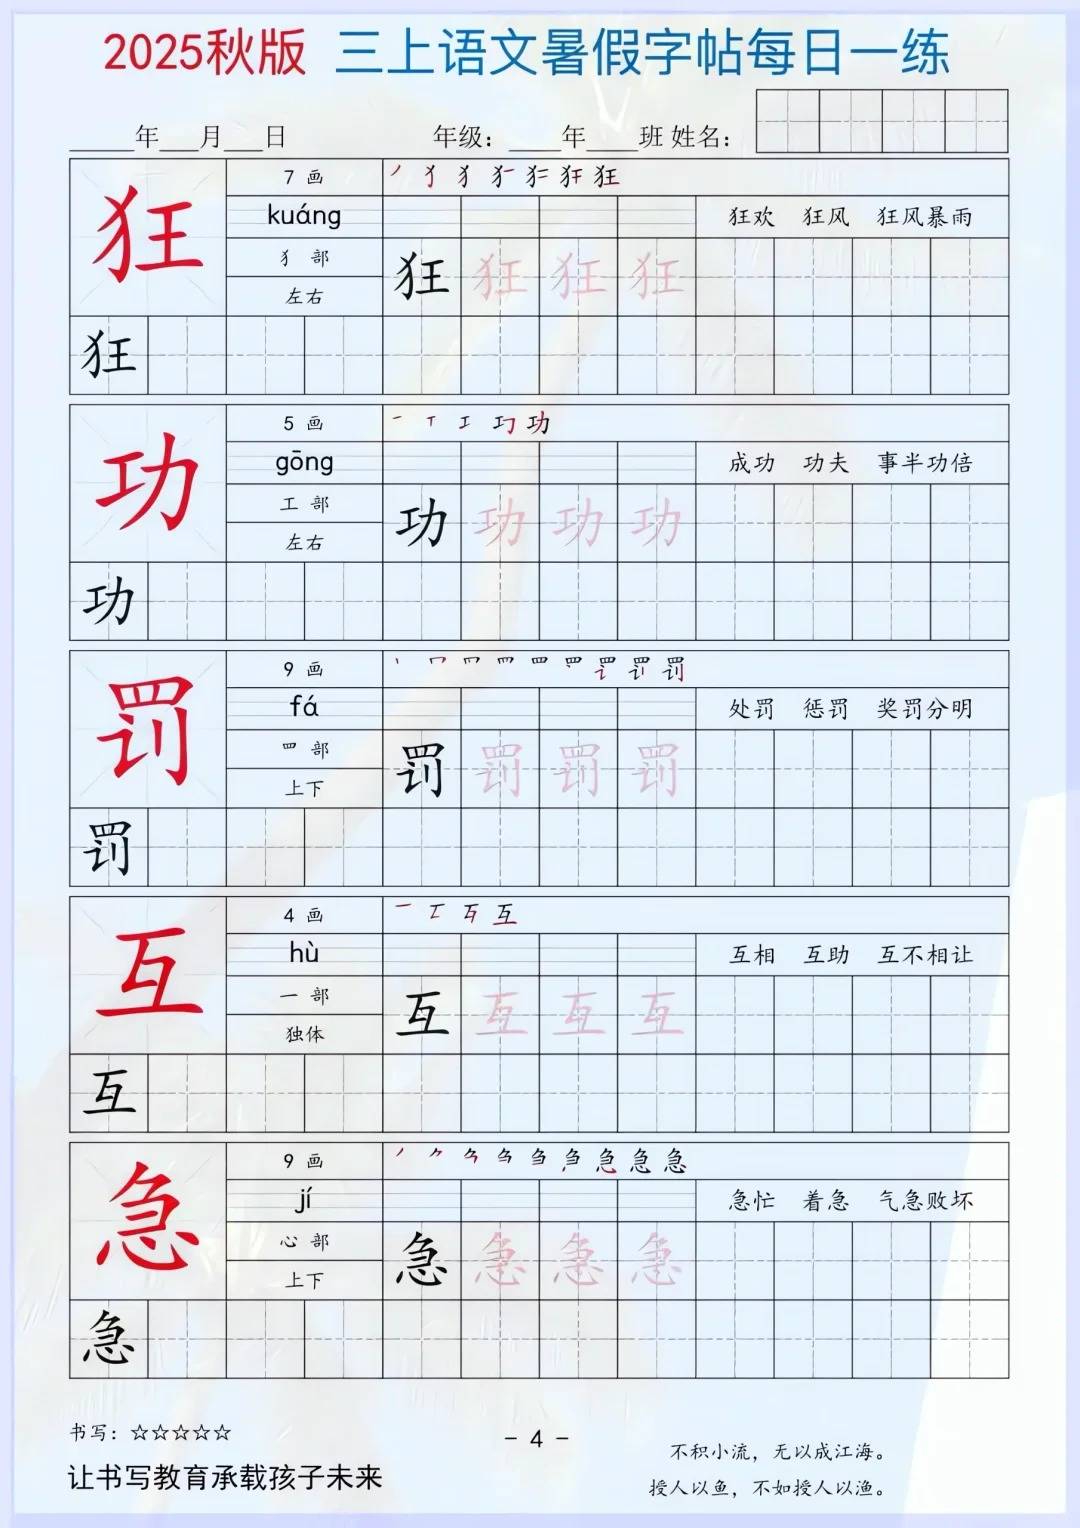 2025秋版 三上语文暑假字帖每日一练
_____年___月___日 年级：____年____班 姓名：
狂 7 画 丿 犭 狂
kuáng 狂欢 狂风 狂风暴雨
犭 部 狂 狂 狂 狂
左右
狂
功 5 画 一 丅 工 功
gōng 成功 功夫 事半功倍
工 部 功 功 功 功
左右
功
罚 9 画 罚
fá 处罚 惩罚 奖罚分明
罒 部 罚 罚 罚 罚
上下
罚
互 4 画 一 互
hù 互相 互助 互不相让
一 部 互 互 互 互
独体
互
急 9 画 急
jí 急忙 着急 气急败坏
心 部 急 急 急 急
上下
急
书写：☆☆☆☆☆
- 4 -
不积小流，无以成江海。
让书写教育承载孩子未来
授人以鱼，不如授人以渔。